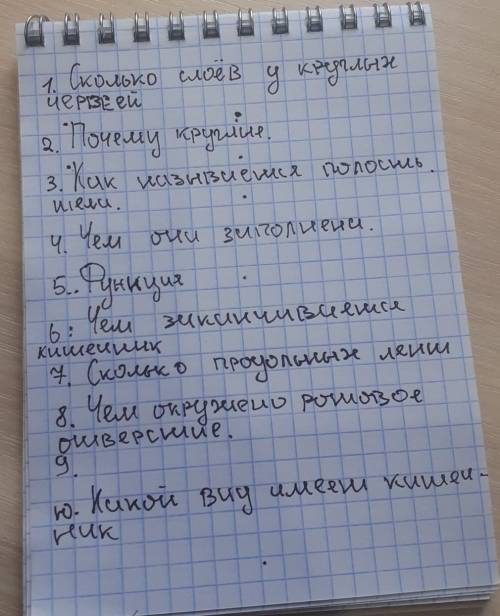 1. Сколько слоёв у круглых
червей
2. Почему круглые.
3. Как называется полость
тела.
4. Чем они заполнена.
5. Функция
6. Чем заканчивается
кишечник
7. Сколько продольных лент
8. Чем окружено ротовое
отверстие.
9.
10. Какой вид имеет кишеч-
ник